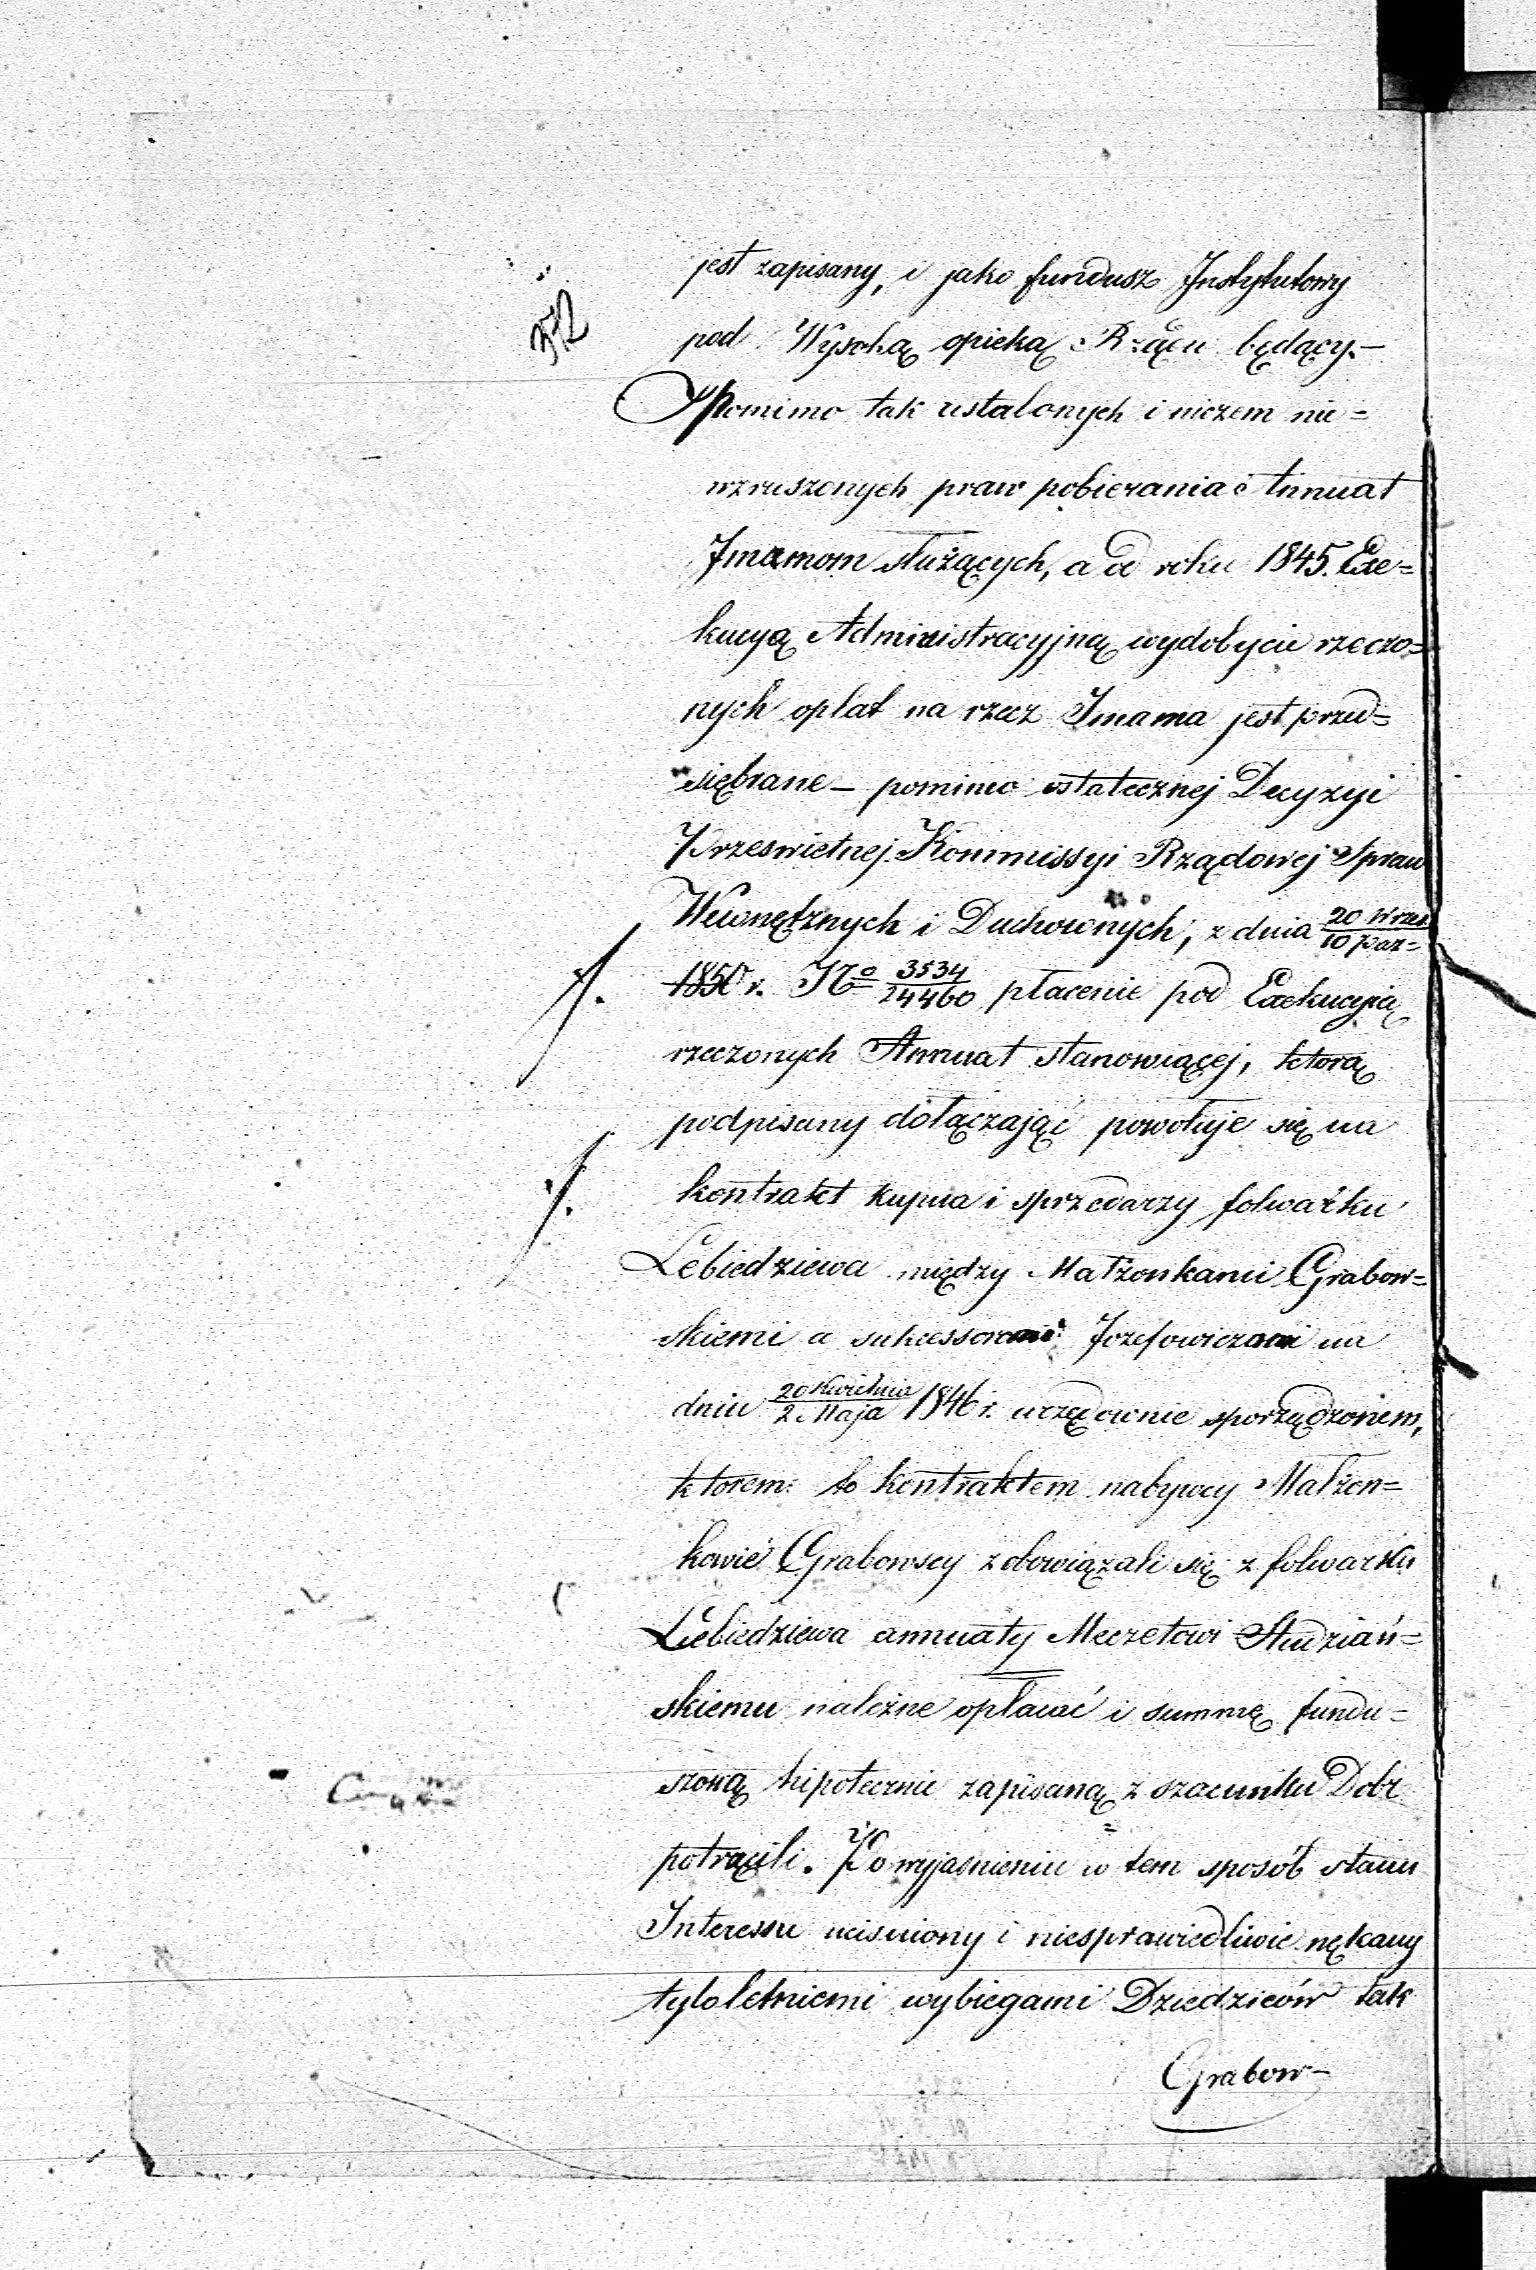 372
jest zapisany, i jako fundusz Instytutowy
pod Wysoką opieką Rządu będący.—
Pomimo tak ustalonych i niczem nie=
wzruszonych praw pobierania Annuat
Imamom służących, a od roku 1845. Exe=
kucyą Administracyjną wydobycie rzeczo=
nych opłat na rzecz Imama jest przed=
siębrane — pomimo ostatecznej Decyzyi
Przeswietnej Kommissyi Rządowej Spraw
Wewnętrznych i Duchownych, z dnia 20 Wrzes/10 Paz=
1850 r. No 3534/24460 płacenie pod Exekucyią
rzeczonych Annuat stanowiącej, ktorą
podpisany dołączając powołuje się na
kontrakt kupna i sprzedarzy folwarku
Lebiedziewa między Małżonkami Grabow=
skiemi a sukcessorami Jozefowiczami na
dniu 20 Kwietnia/2 Maja 1846 r. urzędownie sporządzonem,
ktorem to kontraktem nabywcy Małżon=
kowie Grabowscy zobowiązali się z folwarku
Lebiedziewa annuaty Meczetowi Studziań=
skiemu należne opłacać i summę fundu=
szową hipotecznie zapisaną z szacunku Dobr
potrącili. Po wyjasnieniu w tem sposób stanu
Interessu uciśniony i niesprawiedliwie nękany
tyloletniemi wybiegami Dziedziców tak
Grabow—